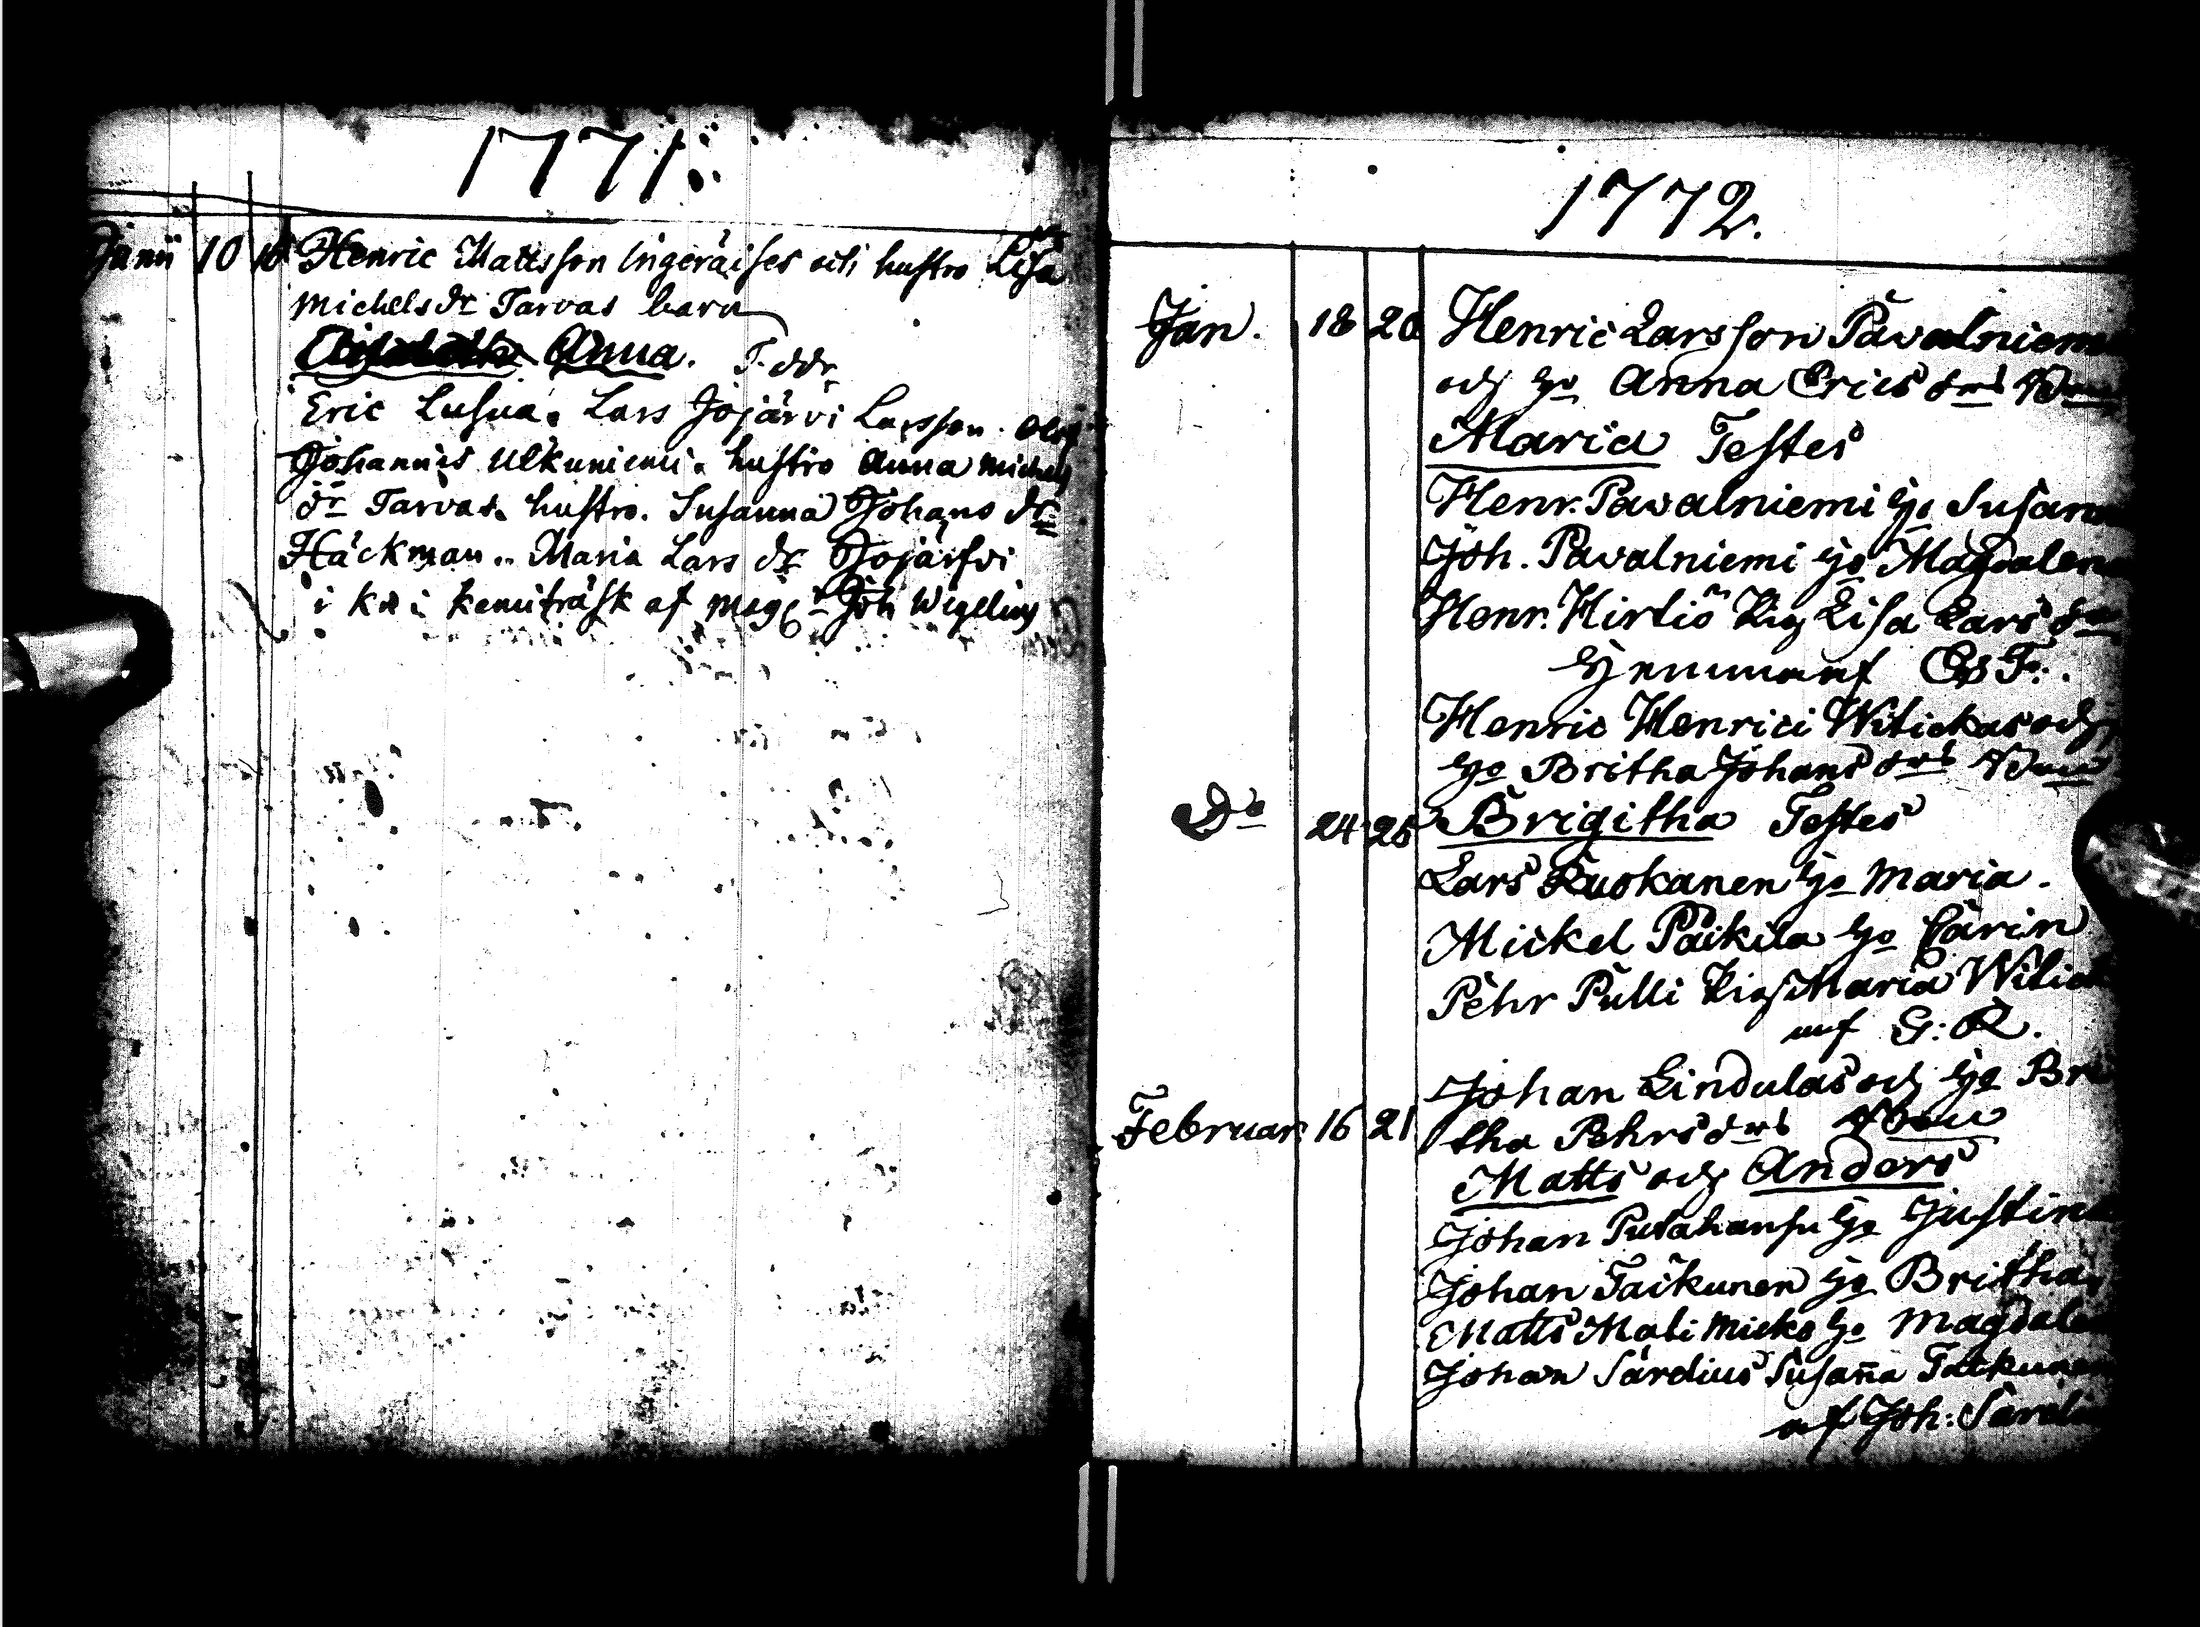 1771.
Junii 10 16 Henric Mattsson Ingeräises och hustro Lisa
Michels dr Tarvas barn
Anna. T. ddr
Eric Lusua. Lars Jojärvi Larsson. Olof
Johannis Ulkuniemi. hustro Anna Michels
dr Tarvas. hustro. Susanna Johans dr
Häckman.. Maria Lars dr Jojärfvi
i Kemiträsk af Mag. Joh Wegelius
1772.
Jan. 18 20 Henric Larsson Pavalniem
och ho Anna Erics drs
Maria Testes
Henr. Pavalniemi ho Susan
Joh. Pavalniemi ho Magdalena
Henr. Hirtiö Pig Lisa Lars dr
af
Henric Henrici Witickas och
ho Britha Johans drs
Do 24 25 Brigitha Testes
Lars Kuokanen ho Maria.
Mickel Päikila ho Carin
Pehr Pulli Pig Maria Witick
af G: R.
Johan Lindulas och ho Bri
Februar 16 21 tha Pehrs drs
Matts och Anders
Johan ho Justina
Johan Taikunen ho Britha
Matts Mati Micko ho Magdale
Johan Sardius Susaña Taikunen
af Joh: Sardi